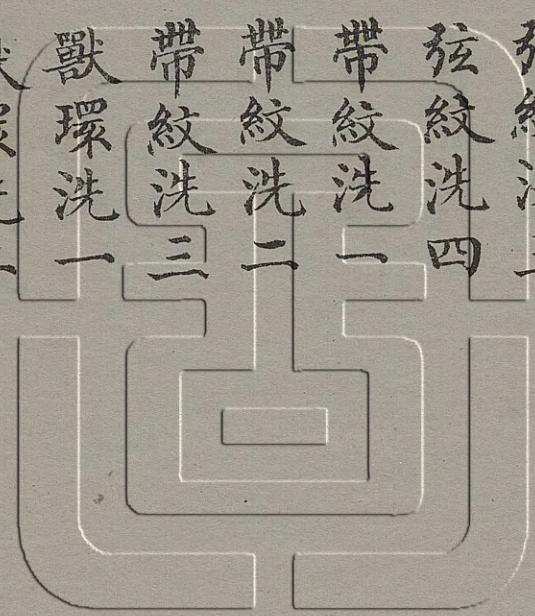 弦紋洗四
帶紋洗一
帶紋洗二
帶紋洗三
獸環洗一